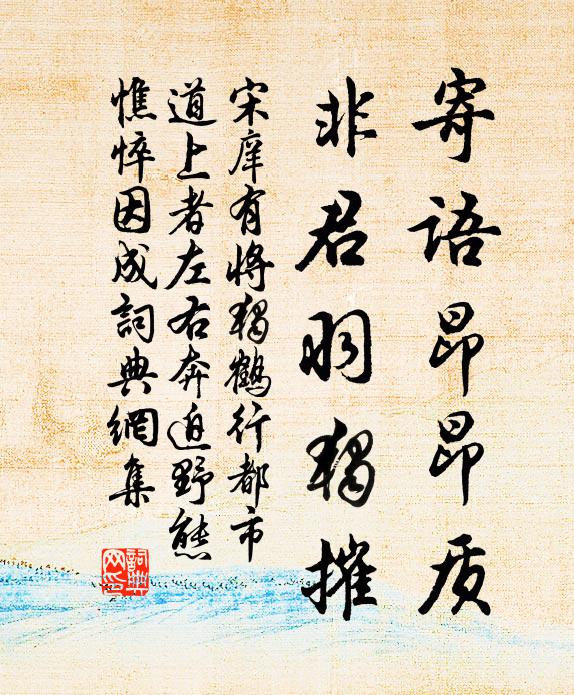 寄语昂昂质
非君羽独摧
宋庠有将独鹤行都市
道上者左右奔迫野态
憔悴因成詞典網集
詞典
网印